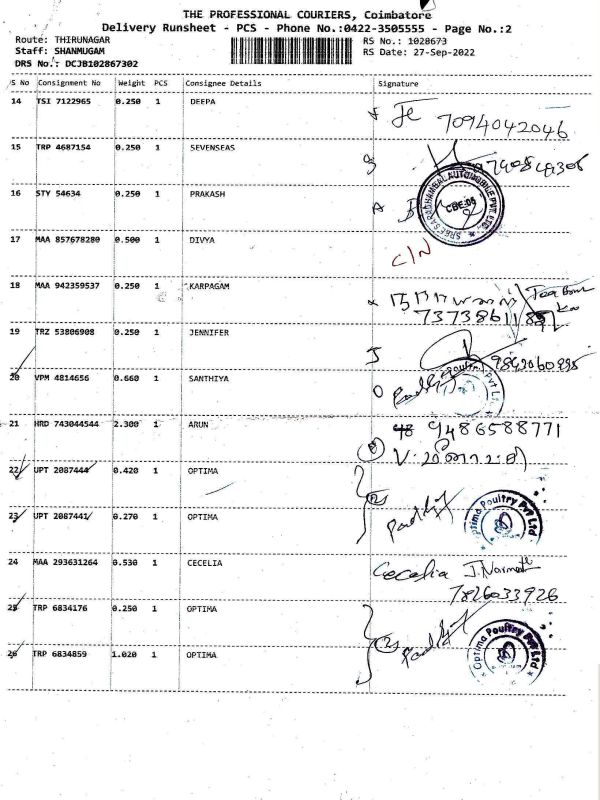 THE PROFESSIONAL COURIERS, Coimbatore
Delivery Runsheet - PCS - Phone No.:0422-3505555 - Page No.:2
Route: THIRUNAGAR RS No.: 1028673
Staff: SHANMUGAM RS Date: 27-Sep-2022
DRS No.: DCJB102867302
S No Consignment No Weight PCS Consignee Details Signature
14 TSI 7122965 0.250 1 DEEPA
7094042046
15 TRP 4687154 0.250 1 SEVENSEAS
16 STY 54634 0.250 1 PRAKASH
SREE SARADHAMBAL AUTOMOBILE PVT LTD. CBE-05
17 MAA 857678280 0.500 1 DIVYA
C/N
18 MAA 942359537 0.250 1 KARPAGAM
19 TRZ 53806908 0.250 1 JENNIFER
20 VPM 4814656 0.660 1 SANTHIYA
Poultry Pvt Ltd
21 HRD 743044544 2.300 1 ARUN
9486588771
22 UPT 2087444 0.420 1 OPTIMA
23 UPT 2087441 0.270 1 OPTIMA
Optima Poultry Pvt Ltd
24 MAA 293631264 0.530 1 CECELIA
Cecelia
7826033926
25 TRP 6834176 0.250 1 OPTIMA
26 TRP 6834859 1.020 1 OPTIMA
Optima Poultry Pvt Ltd